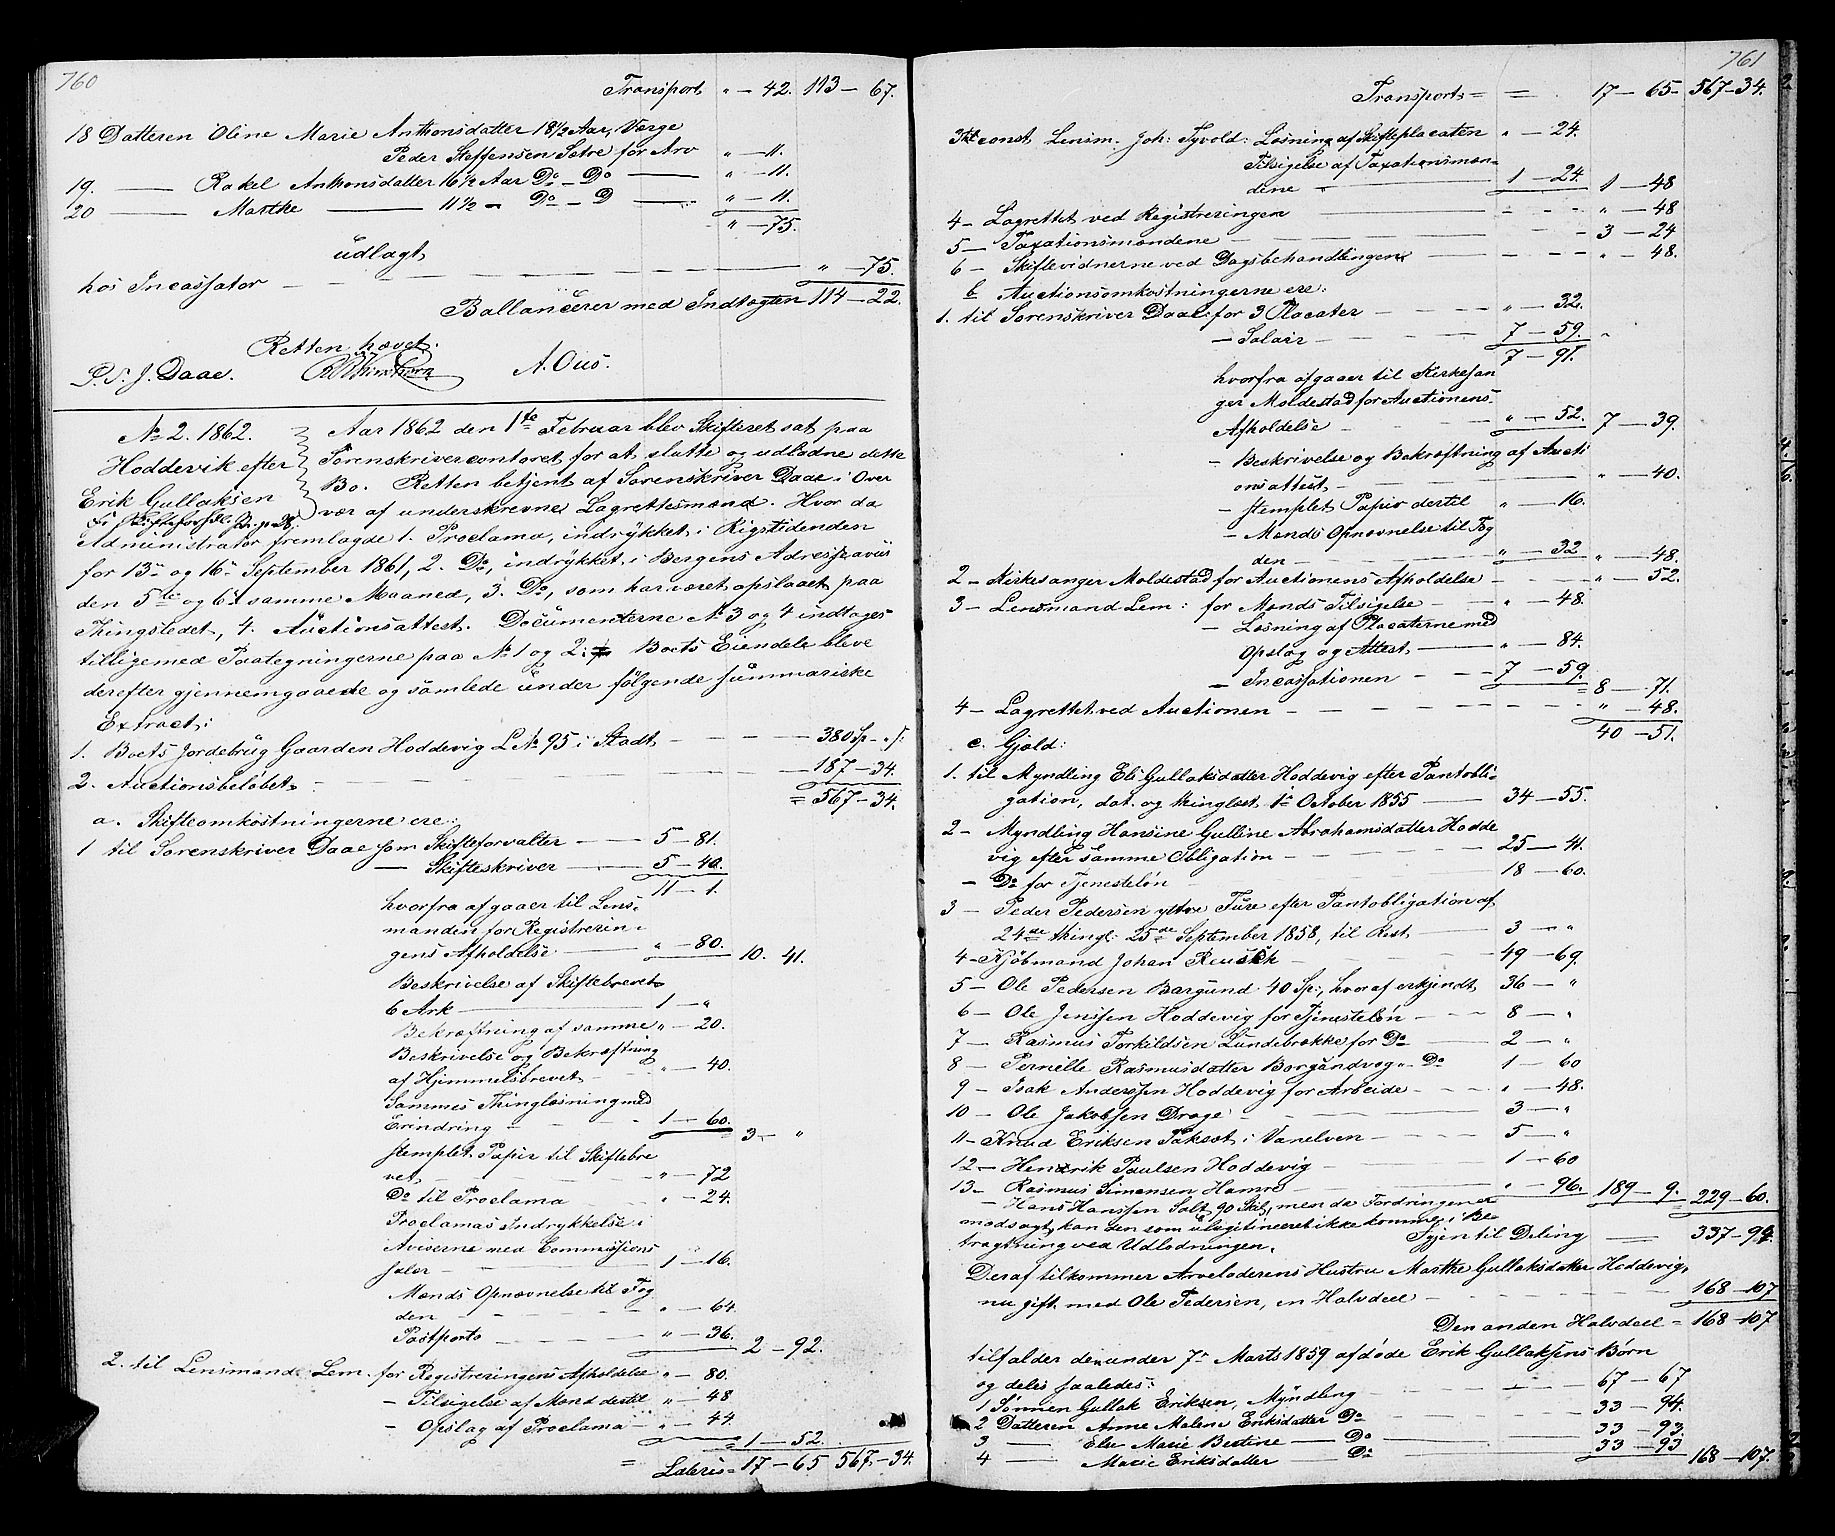 760
Transport " — 42. 113 — 67.
18 Datteren Oline Marie Anthonsdatter 18 1/2 Aar, Værge
Peder Steffensen Sætre for Arv " — 11.
19. — Rakel Anthonsdatter 16 1/2 Aar Do — Do — " — 11.
20 — Marthe — 11 1/2 — Do — D — " — 11.
" — 75.
udlagt
hos Incassator — — — — " — 75.
Ballancerer med Indtægten 114 — 22.
Retten hævet.
P. S. J. Daae. A. Ous.
No 2. 1862.
Hoddevik efter
Erik Gullaksen
Aar 1862 den 1ste Februar blev Skifteret sat paa
Sorenskrivercontoret for at slutte og udlodne dette
Bo. Retten betjent af Sorenskriver Daae i Over
vær af underskrevne Lagrettesmænd. Hvor da
Administrator fremlagde 1. Proclama, indrykket i Rigstidenden
for 13de og 16de September 1861, 2. Do, indrykket i Bergens Adresseavis
den 5te og 6te samme Maaned, 3. Do, som har været opslaaet paa
Thingstedet, 4. Auctionsattest. Documenterne No 3 og 4 indtages
tilligemed Paategningerne paa No 1 og 2: Boets Eiendele bleve
derefter gjennemgaaede og samlede under følgende summariske
Extract:
1. Boets Jordebrug Gaarden Hoddevig L.No 95 i Stadt — — — 380 Sp — " s:
2. Auctionsbeløbet — — — 187 — 34.
= 567 — 34.
a. Skifteomkostningerne ere:
1 til Sorenskriver Daae som Skifteforvalter — 5 — 81.
— Skifteskriver — 5 — 40.
11 — 1.
hvorfra afgaaer til Lens-
manden for Registrerin-
gens Afholdelse — " — 80. 10. 41.
Beskrivelse af Skiftebrevet
6 Ark — 1 — "
Bekræftning af samme " — 20.
Beskrivelse og Bekræftning
af Hjemmelsbrevet — " — 40.
Sammes Thinglæsning med
Erindring — 1 — 60. 3 — "
stemplet Papir til Skiftebre
vet — " — 72
Do til Proclama " — 24.
Proclamas Indrykkelse i
Aviserne med Commissions
salær — 1 — 16.
Mænds Opnævnelse til Fog
den — " — 64.
Postporto — " — 36. 2 — 92.
2. til Lensmand Lem for Registreringens Afholdelse " — 80.
— Tilsigelse af Mænd dertil " — 48
— Opslag af Proclama — " — 44
= 1 — 52.
= Lateris = 17 — 65 567 — 34.
761
Transport = = 17 — 65 — 567 — 34.
3 til const Lensm. Joh: Tyvold: Løsning af Skifteplacaten " — 24.
Tilsigelse af Taxationsmæn-
dene — 1 — 24. 1 — 48
4 — Lagrettet ved Registreringen — " — 48
5 — Taxationsmændene — 3 — 24
6 — Skiftevidnerne ved Dagsbehandlingen — " — 48.
b Auctionsomkostningerne ere:
1. til Sorenskriver Daae for 3 Placater — " — 32.
— Salair — 7 — 59. "
7 — 91.
hvorfra afgaaer til Kirkesan
ger Moldestad for Auctionens
Afholdelse — " — 52. 7 — 39.
— Beskrivelse og Bekræftning af Aucti
onsattest — " — 40.
— stemplet Papir dertil " — 16.
— Mænds Opnævnelse til Fog
den — " — 32 " — 48.
2 — Kirkesanger Moldestad for Auctionens Afholdelse — " — 52.
3 — Lensmand Lem: for Mænds Tilsigelse — " — 48.
— Løsning af Placaterne med
Opslag og Attest — " — 84.
— Incassationen — 7 — 59. 8 — 71.
4 — Lagrettet ved Auctionen — " — 48.
40 — 51.
c. Gjæld:
1. til Myndling Eli Gullaksdatter Hoddevig efter Pantobli-
gation, dat. og thinglæst 1ste October 1855 — 34 — 55.
2 — Myndling Hansine Gulline Abrahamsdatter Hodde
vig efter samme Obligation — 25 — 41.
— Do for Tjenesteløn 18 — 60.
3 — Peder Pedersen yttre Fure efter Pantobligation af
24de thingl: 25de September 1858, til Rest — 3 — "
4 — Kjøbmand Johan Reusch — 49 — 69.
5 — Ole Pedersen Bargund 40 Sp:, hvoraf erkjendt 36 — "
6 — Ole Jenssen Hoddevig for Tjenesteløn — 8 — "
7 — Rasmus Torkildsen Lundebrække for Do — 2 — "
8 — Pernelle Rasmusdatter Borgundvog — Do 1 — 60
9 — Isak Anderssen Hoddevig for Arbeide — " — 48.
10 — Ole Jakobsen Drage — 3 — "
11 — Knud Eriksen Taksæt i Vanelven — 5 — "
12 — Henrik Paulsen Hoddevig — 1 — 60
13 — Rasmus Simensen Hamre " — 96. 189 — 9. 229 — 60.
— Hans Hanssen Salt 90 Skl, men da Fordringen er
modsagt, kan den som ulegitimeret ikke komme i Be
tragtning ved Udlodningen. Igjen til Deling — 337 — 94.
Deraf tilkommer Arveladerens Hustru Marthe Gullaksdatter Hoddevig,
nu gift med Ole Pedersen, en Halvdeel — 168 — 107
Den anden Halvdeel = 168 — 107
tilfalder den under 7de Marts 1859 afdøde Erik Gullaksens Børn
og deles saaledes:
1 Sønnen Gullak Eriksen, Myndling — 67 — 67
2 Datteren Anne Malene Eriksdatter Do — 33 — 94.
3 — Else Marie Bestine — Do — 33 — 93.
4 — Marie Eriksdatter — Do 33 — 93 168 — 107.